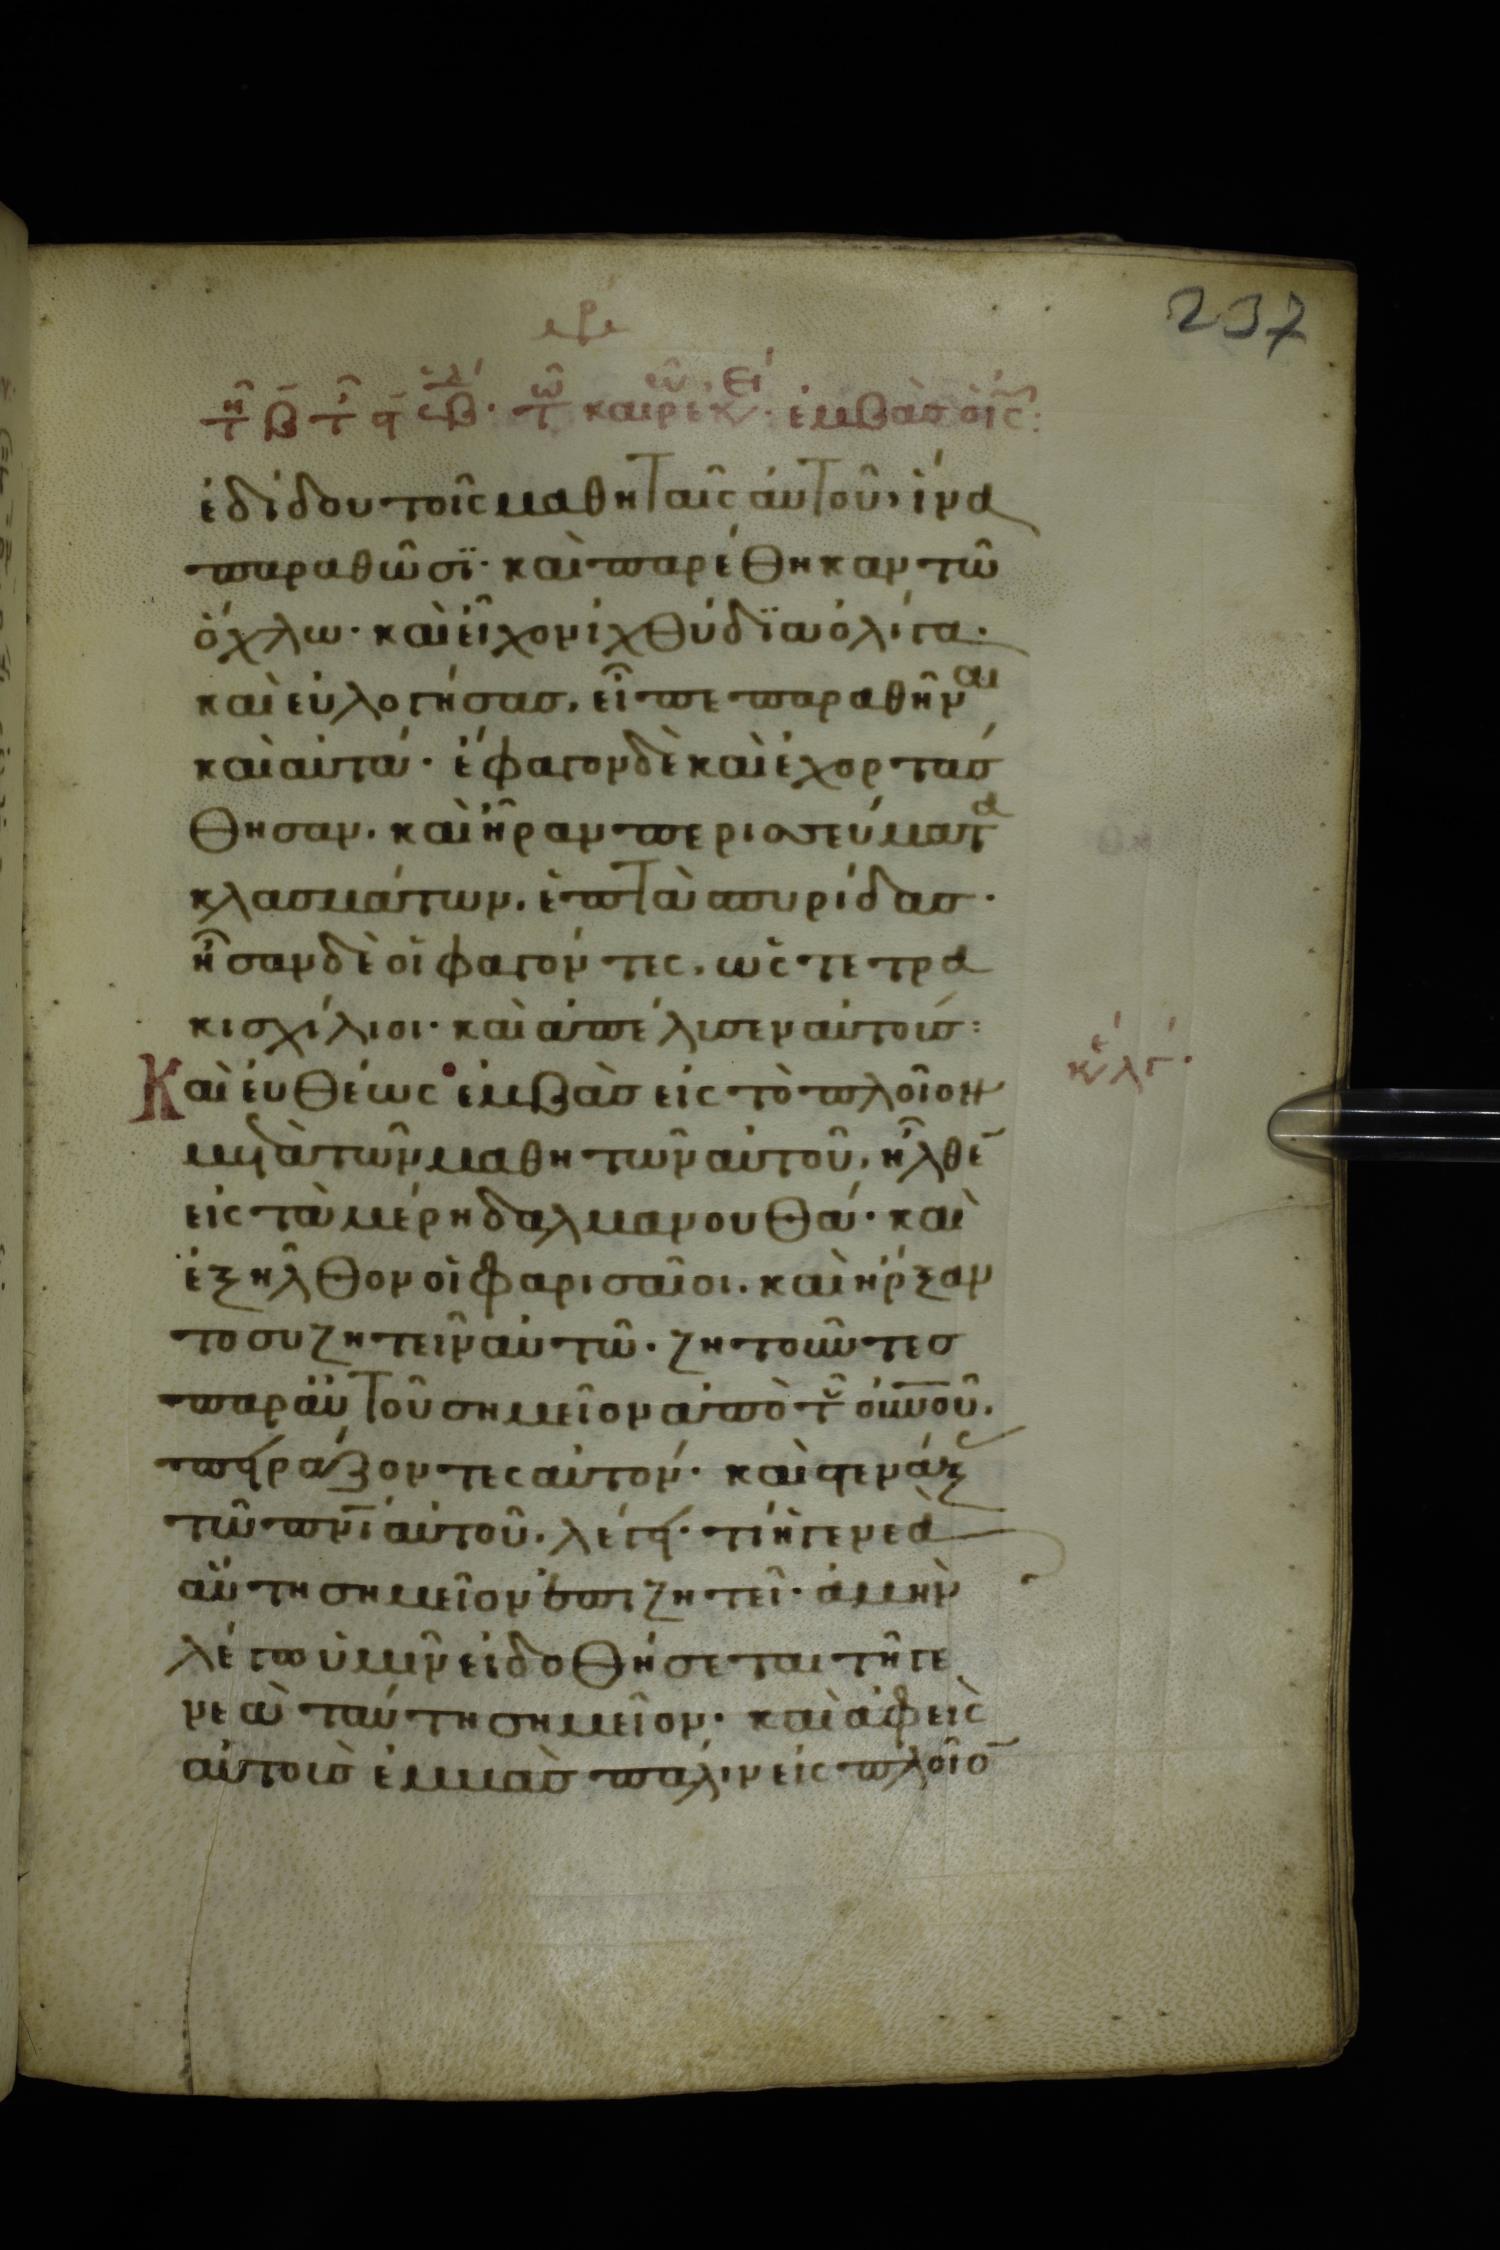 237
ἐδίδου τοῖς μαθηταῖς αὐτοῦ, ἵνα
παραθῶσϊ· καὶ παρέθηκαν τῶ
ὄχλω· καὶ εἶχον ἰχθύδϊα ὀλίγα·
καὶ εὐλογήσας, εἶπε παραθῆναι
καὶ αὐτά· ἔφαγον δὲ καὶ ἐχορτάσ
θησαν, καὶ ἦραν περισσεύματα
κλασμάτων, ἑπτὰ σπυρίδας·
ἦσαν δὲ οἱ φαγόντες, ὡς τετρα
κισχίλιοι· καὶ ἀπέλυσεν αὐτούς:
Καὶ εὐθέως ἐμβὰς εἰς τὸ πλοῖον
μετὰ τῶν μαθητῶν αὐτοῦ, ἦλθε
εἰς τὰ μέρη δαλμανουθά· καὶ
ἐξῆλθον οἱ φαρισαῖοι, καὶ ἤρξαν
το συζητεῖν αὐτῶ· ζητοῦντες
παρ αὐτοῦ σημεῖον ἀπὸ τοῦ οὐνοῦ,
πειράζοντες αὐτόν· καὶ στενάξας
τῶ πνι αὐτοῦ, λέγει· τί ἡ γενεὰ
αὕτη σημεῖον ἐπιζητεῖ· ἀμὴν
λέγω ὑμῖν εἰ δοθήσεται τῆ γε
νεᾶ ταύτη σημεῖον· καὶ ἀφεὶς
αὐτοὺς ἐμβὰς πάλιν εἰς πλοῖο